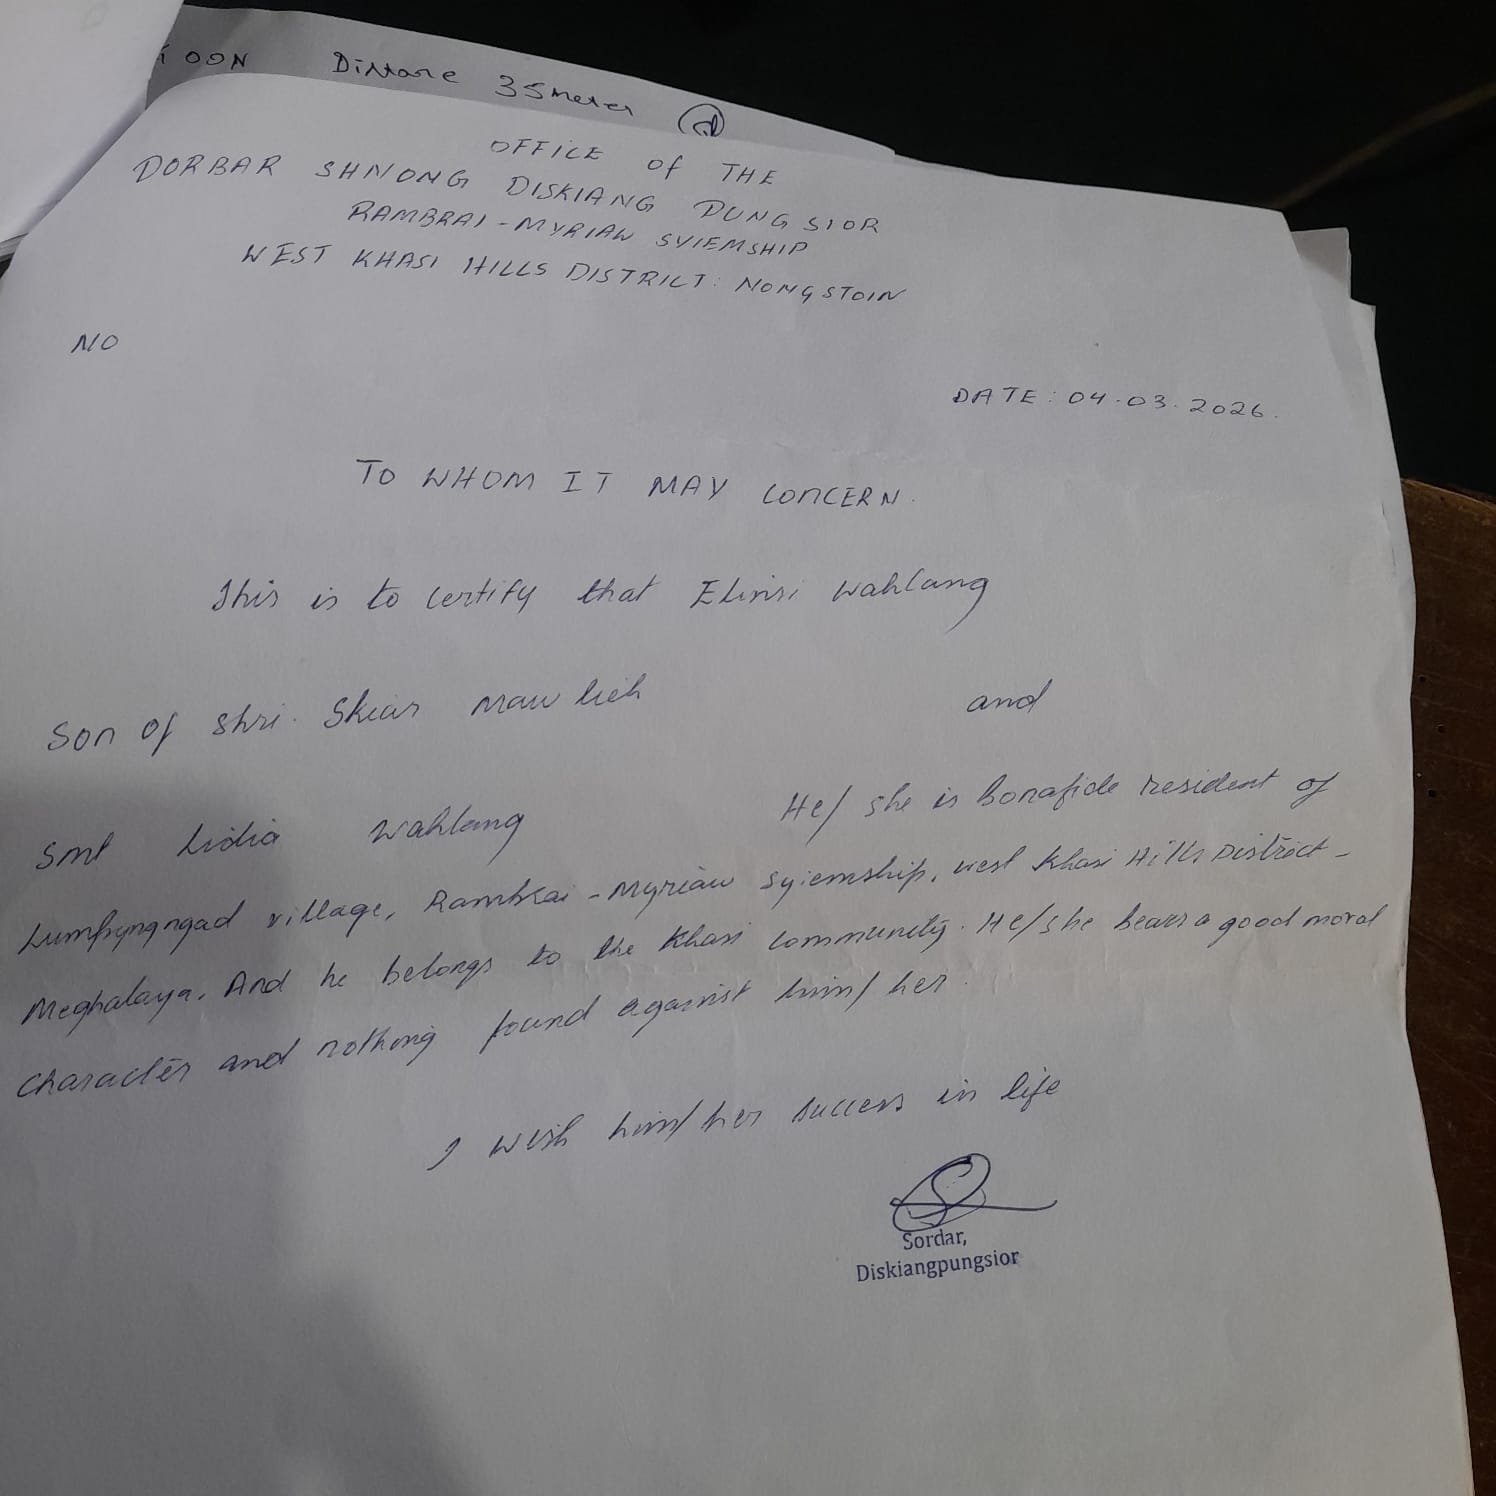 OON Distane 35meter
OFFICE of THE
DORBAR SHNONG DISKIANG PUNGSIOR
RAMBRAI - MYRIAW SYIEMSHIP
WEST KHASI HILLS DISTRICT: NONGSTOIN
NO
DATE: 04.03.2026.
TO WHOM IT MAY CONCERN.
This is to certify that Elinsi Wahlang
Son of Shri. Skiar Mawlieh and
Smt Lidia Wahlang He/ she is Bonafide resident of
Lumpyngngad village, Rambrai - Myriaw Syiemship, West Khasi Hills District -
Meghalaya. And he belongs to the Khasi community. He/she bears a good moral
character and nothing found against him/her.
I wish him/her success in life
Sordar,
Diskiangpungsior